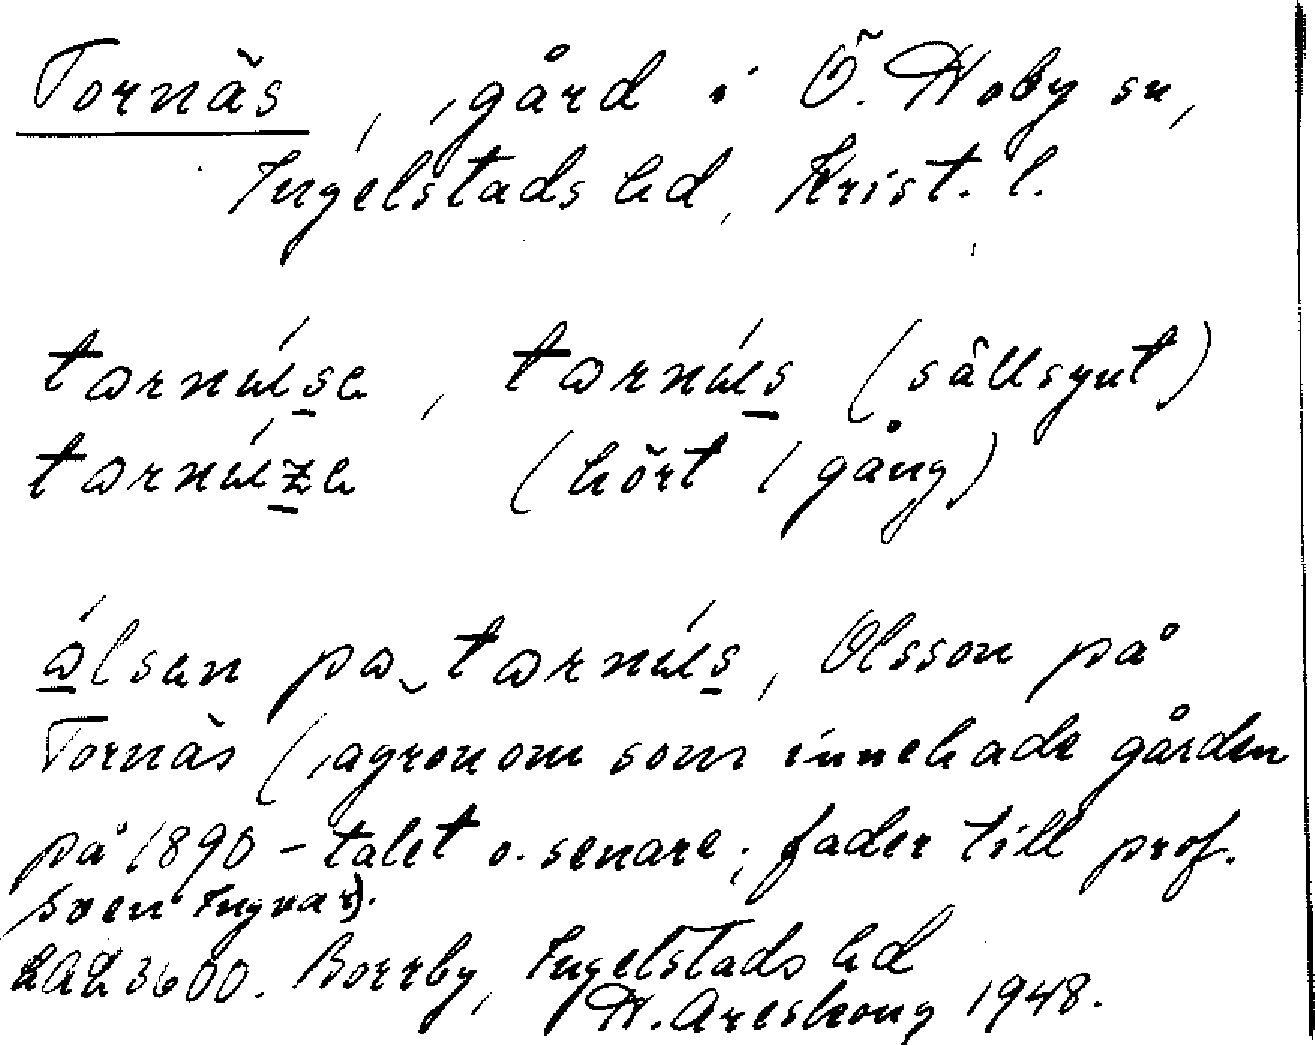 Tornäs, gård i Ö. Hoby sn,
Ingelstads hd, Krist. l.
tɷrnǽsa, tɷrnǽs (sällsynt)
tɷrnǽza (hört 1 gång)
ɷ́lsan pɷ tɷrnǽs, Olsson på
Tornäs (agronom som innehade gården
på 1890-talet o. senare; fader till prof.
Sven Ingvar).
LAL 3600. Borrby, Ingelstads hd
H. Areskoug 1948.